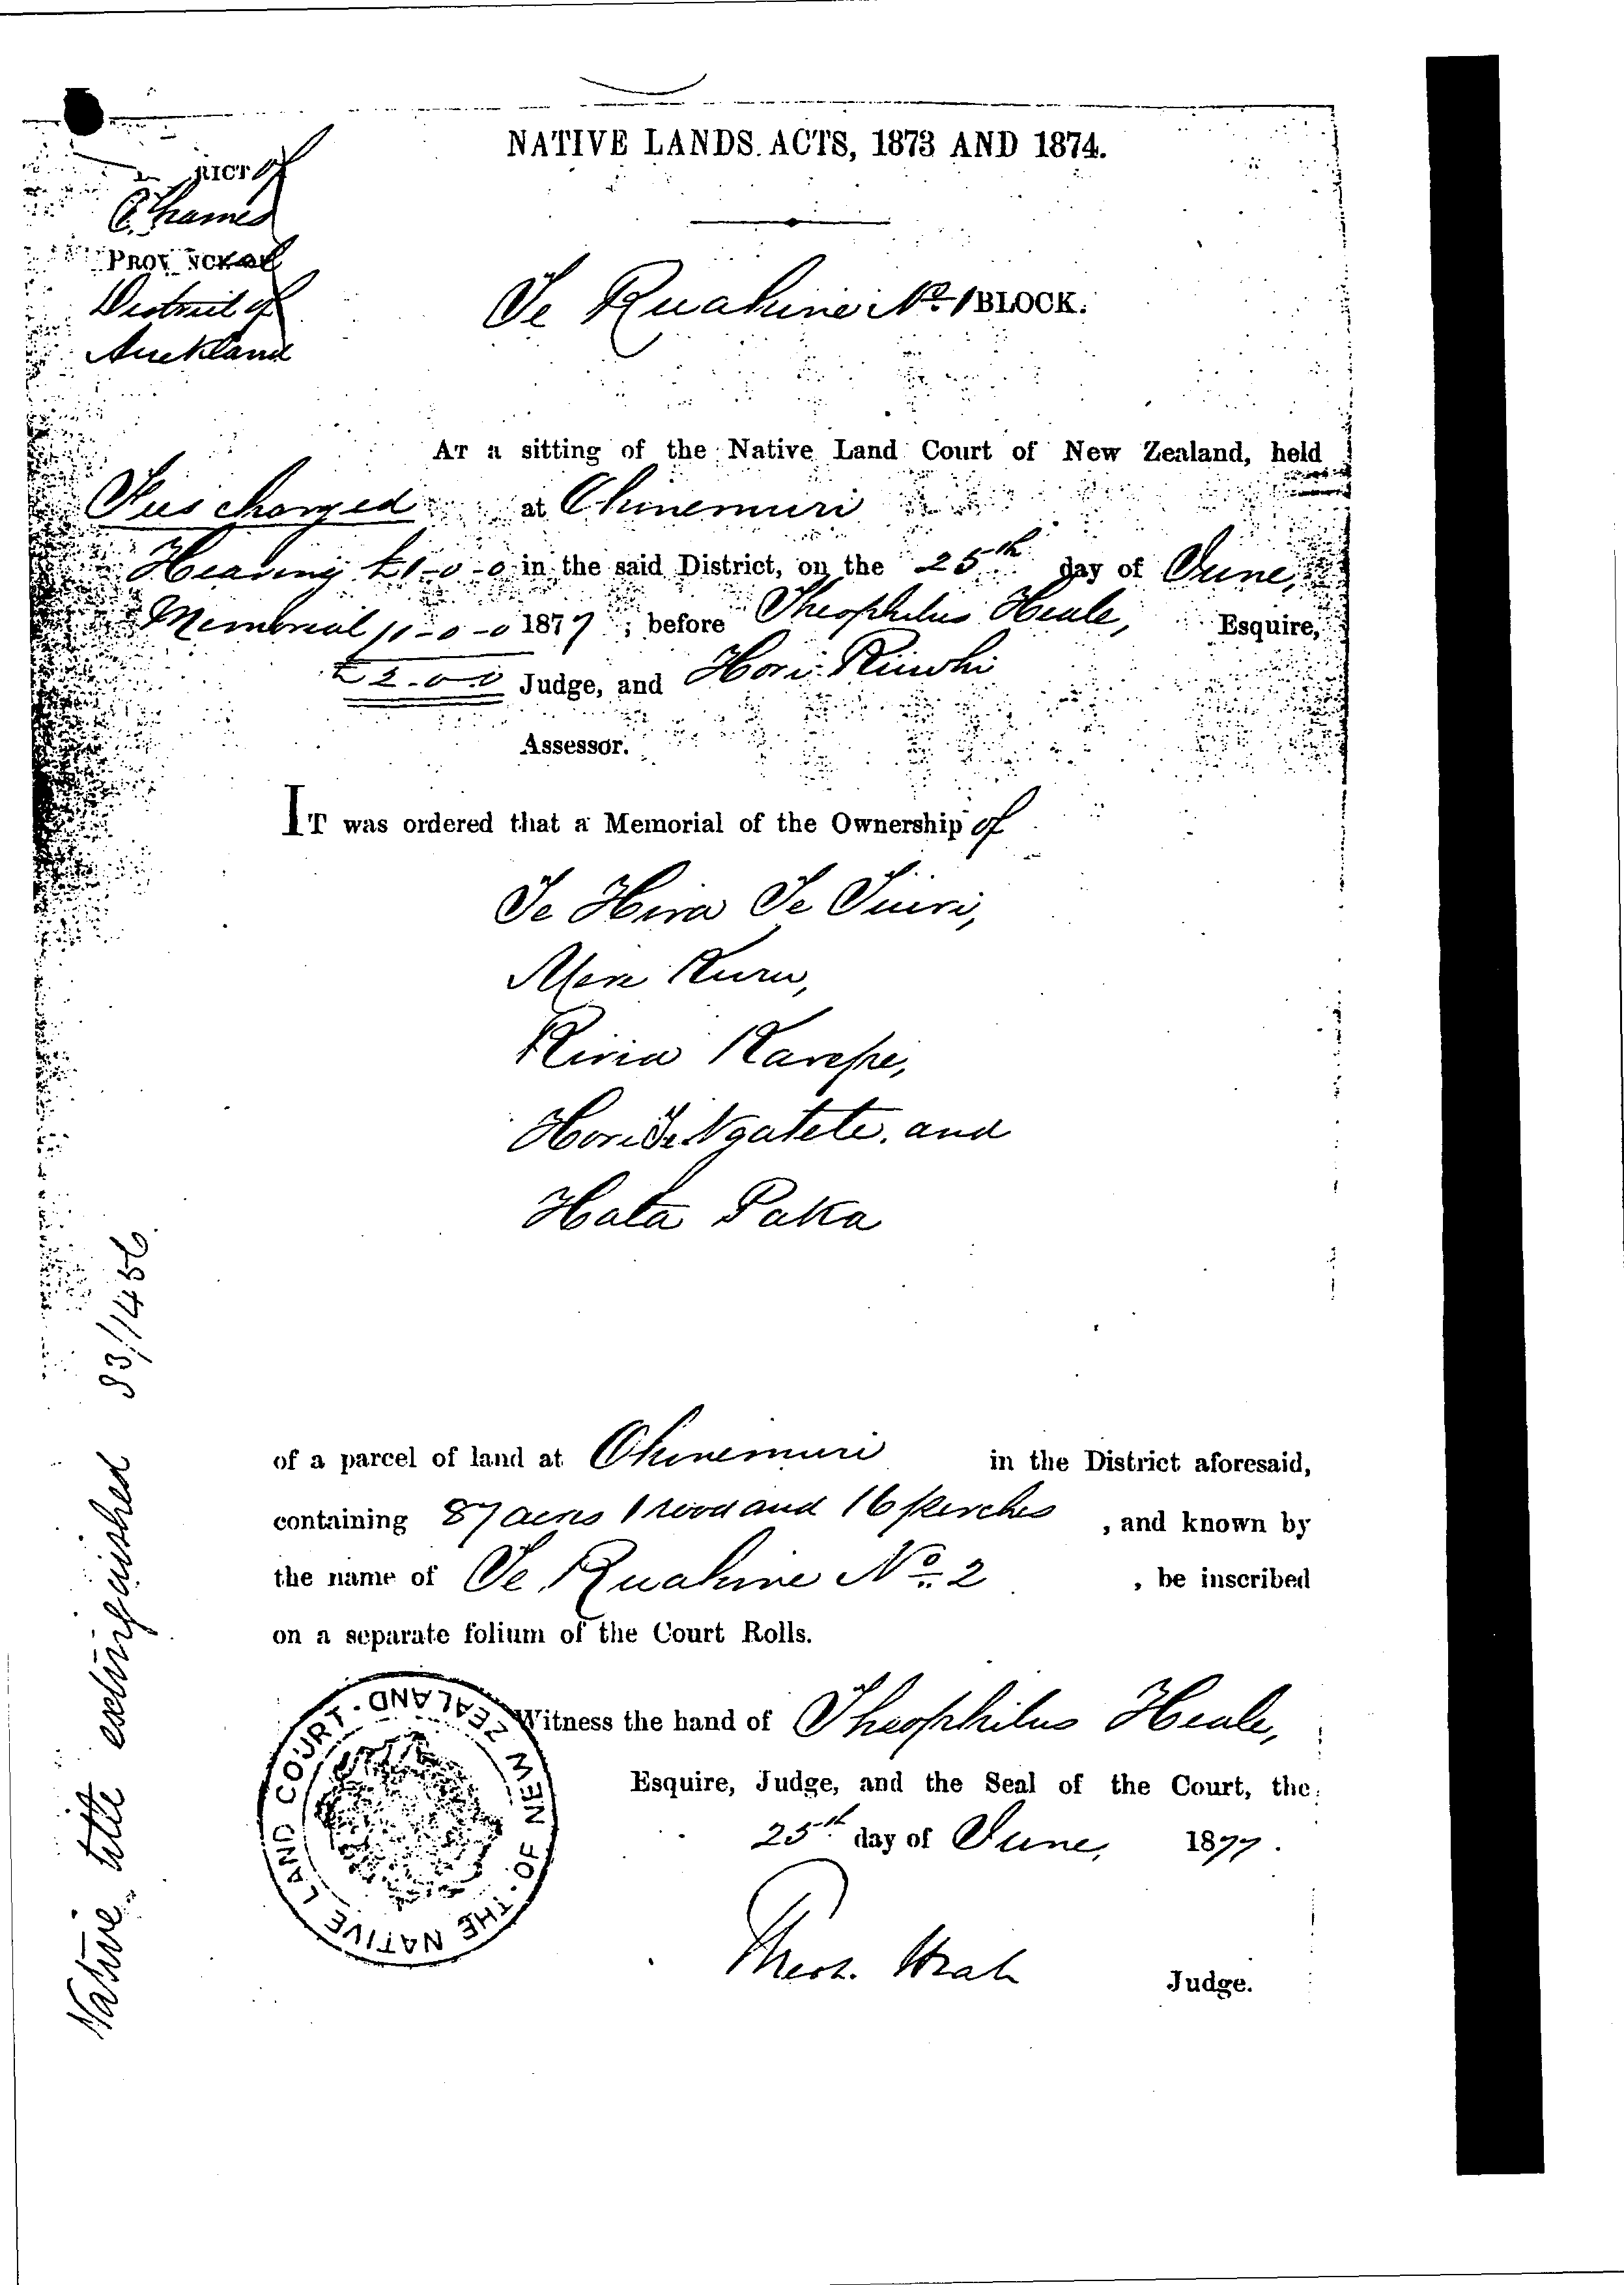 NATIVE LANDS ACTS, 1873 AND 1874.
RICT of
Thames
PROVINCE OF
District of
Auckland
Te Ruahine No. 1 BLOCK.
AT a sitting of the Native Land Court of New Zealand, held
Fees charged at Ohinemuri
Hearing £1-0-0 in the said District, on the 25th day of June,
Memorial 1-0-0 1877; before Theophilus Heale, Esquire,
£2.0.0 Judge, and Hori
Assessor.
IT was ordered that a Memorial of the Ownership of
Te Hira Te Tuiri,
Mere Kuru,
Riria Karepe,
Hori Te Ngatete, and
Hata Paka
of a parcel of land at Ohinemuri in the District aforesaid,
containing 87 acres 1 rood and 16 perches, and known by
the name of Te Ruahine No. 2, be inscribed
on a separate folium of the Court Rolls.
Witness the hand of Theophilus Heale,
Esquire, Judge, and the Seal of the Court, the
25th day of June, 1877.
Theo. Heale Judge.
THE NATIVE LAND COURT · OF NEW ZEALAND ·
Native title extinguished 83/1456